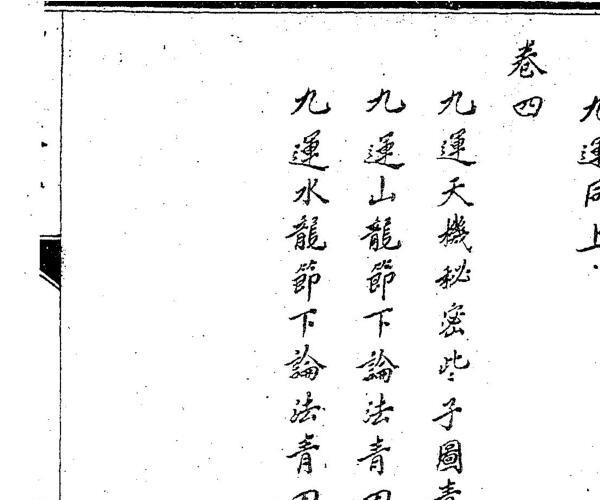 九運同上
卷四
九運天機秘密些子圖青
九運山龍節下論法青四
九運水龍節下論法青四